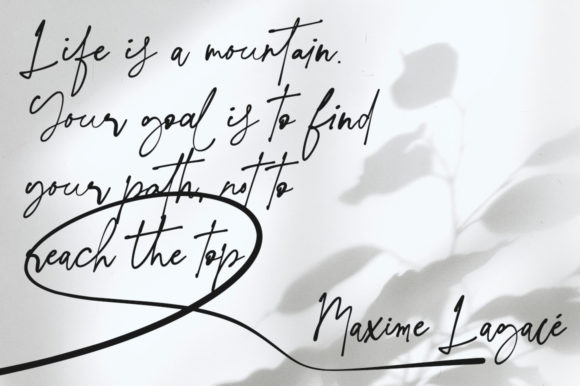 Life is a mountain.
Your goal is to find
your path, not to
reach the top
Maxime Lagacé